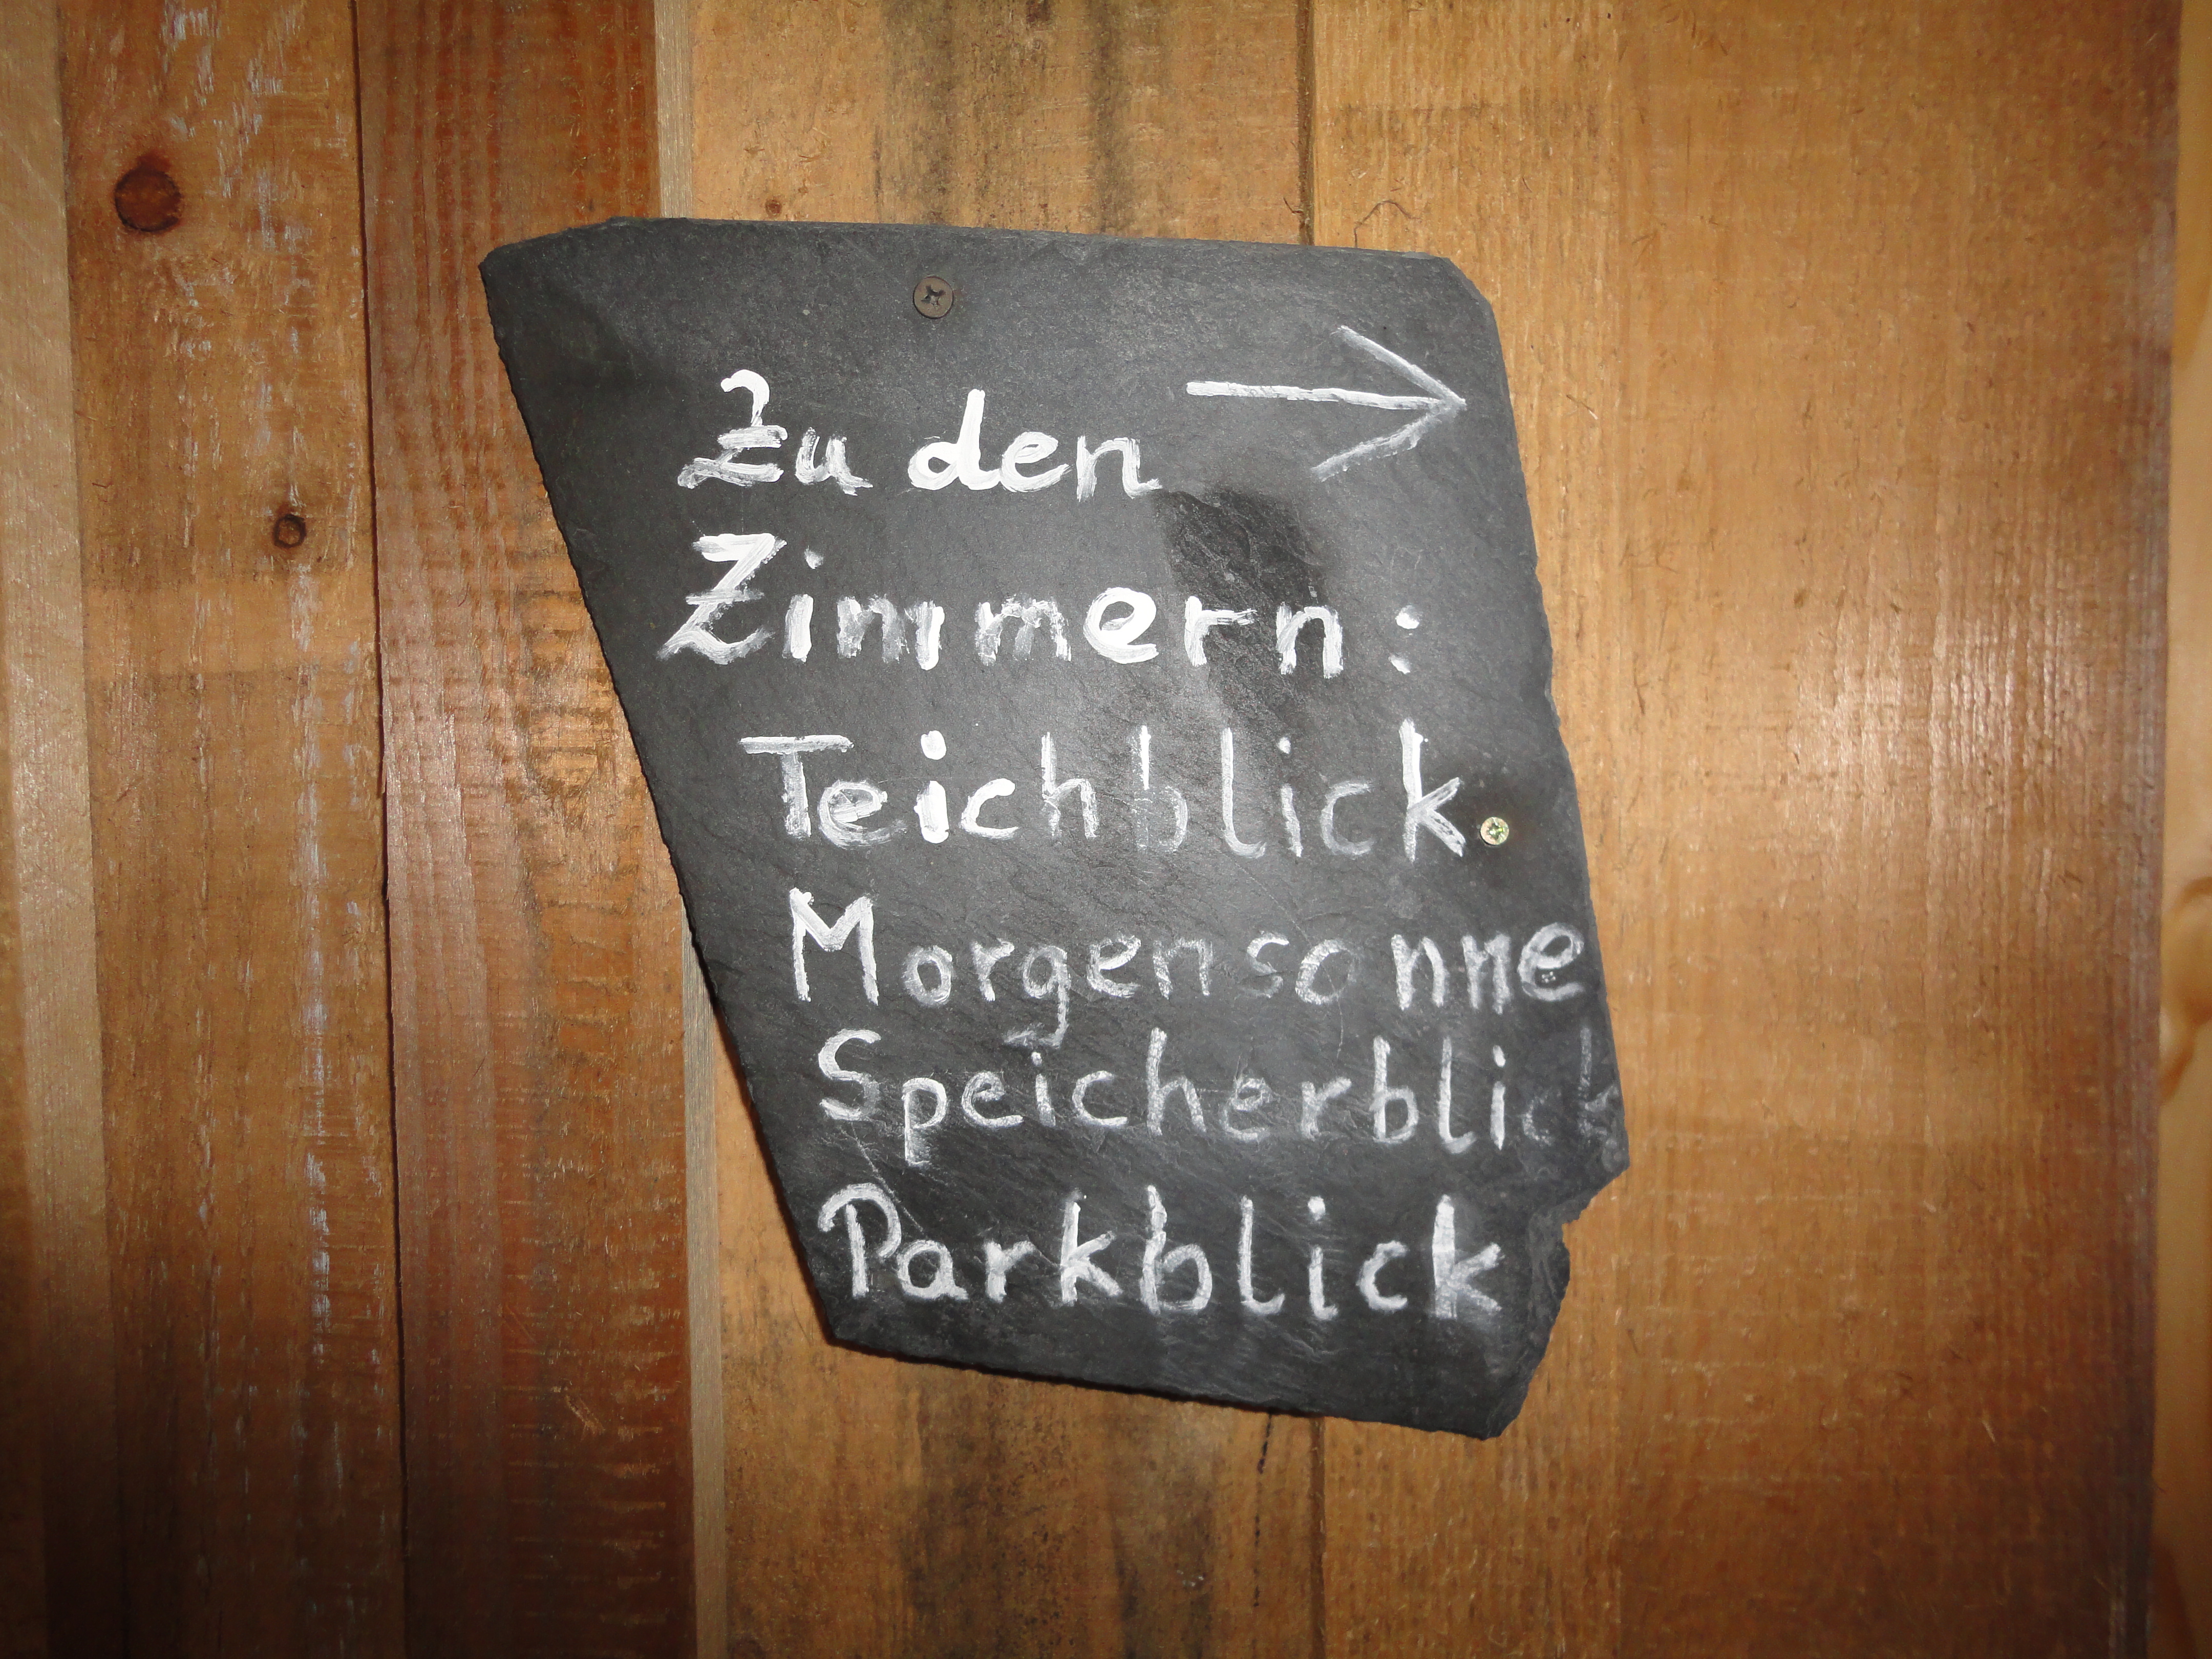 Zu den →
Zimmern:
Teichblick
Morgensonne
Speicherblick
Parkblick